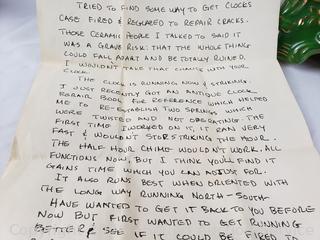 TRIED TO FIND SOME WAY TO GET CLOCKS
CASE FIRED & REGLAZED TO REPAIR CRACKS.
THOSE CERAMIC PEOPLE I TALKED TO SAID IT
WAS A GRAVE RISK: THAT THE WHOLE THING
COULD FALL APART AND BE TOTALLY RUINED.
I WOULDN'T TAKE THAT CHANCE WITH YOUR
CLOCK.
THE CLOCK IS RUNNING NOW & STRIKING.
I JUST RECENTLY GOT AN ANTIQUE CLOCK
REPAIR BOOK FOR REFERENCE WHICH HELPED
ME TO RE-ESTABLISH TWO SPRINGS WHICH
WERE TWISTED AND NOT OPERATING. THE
FIRST TIME I WORKED ON IT, IT RAN VERY
FAST & WOULDN'T STOP STRIKING THE HOUR.
THE HALF HOUR CHIME WOULDN'T WORK. ALL
FUNCTIONS NOW, BUT I THINK YOU'LL FIND IT
GAINS TIME WHICH YOU CAN ADJUST FOR.
IT ALSO RUNS BEST WHEN ORIENTED WITH
THE LONG WAY RUNNING NORTH-SOUTH.
HAVE WANTED TO GET IT BACK TO YOU BEFORE
NOW BUT FIRST WANTED TO GET RUNNING
BETTER & SEE IF IT COULD BE FIRED TO